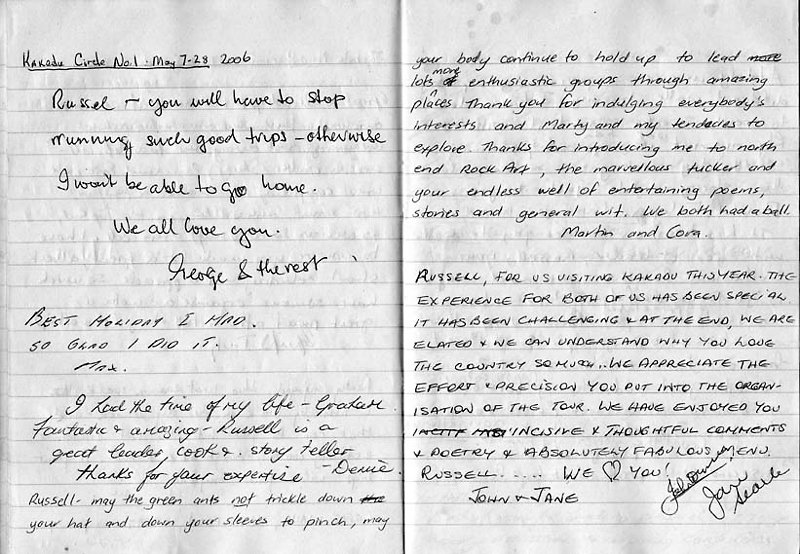 Kakadu Circle No.1 - May 7-28 2006
Russel - you will have to stop
running such good trips - otherwise
I won't be able to go home.
We all love you.
George & the rest
BEST HOLIDAY I HAD.
SO GLAD I DID IT.
Max.
I had the time of my life - Graham
Fantastic & amazing - Russell is a
great leader, cook & story teller
thanks for your expertise - Denise.
Russell - may the green ants not trickle down the
your hat and down your sleeves to pinch, may
your body continue to hold up to lead more
lots of more enthusiastic groups through amazing
places Thank you for indulging everybody's
interests and Marty and my tendacies to
explore Thanks for introducing me to north
end Rock Art, the marvellous tucker and
your endless well of entertaining poems,
stories and general wit. We both had a ball.
Martin and Cora.
RUSSELL, FOR US VISITING KAKADU THIS YEAR. THE
EXPERIENCE FOR BOTH OF US HAS BEEN SPECIAL
IT HAS BEEN CHALLENGING & AT THE END, WE ARE
ELATED & WE CAN UNDERSTAND WHY YOU LOVE
THE COUNTRY SO MUCH.. WE APPRECIATE THE
EFFORT & PRECISION YOU PUT INTO THE ORGAN-
ISATION OF THE TOUR. WE HAVE ENJOYED YOU
INCISIVE & THOUGHTFUL COMMENTS
& POETRY & ABSOLUTELY FABULOUS MENU.
RUSSELL..... WE ♡ YOU!
JOHN & JANE
Jan Searle